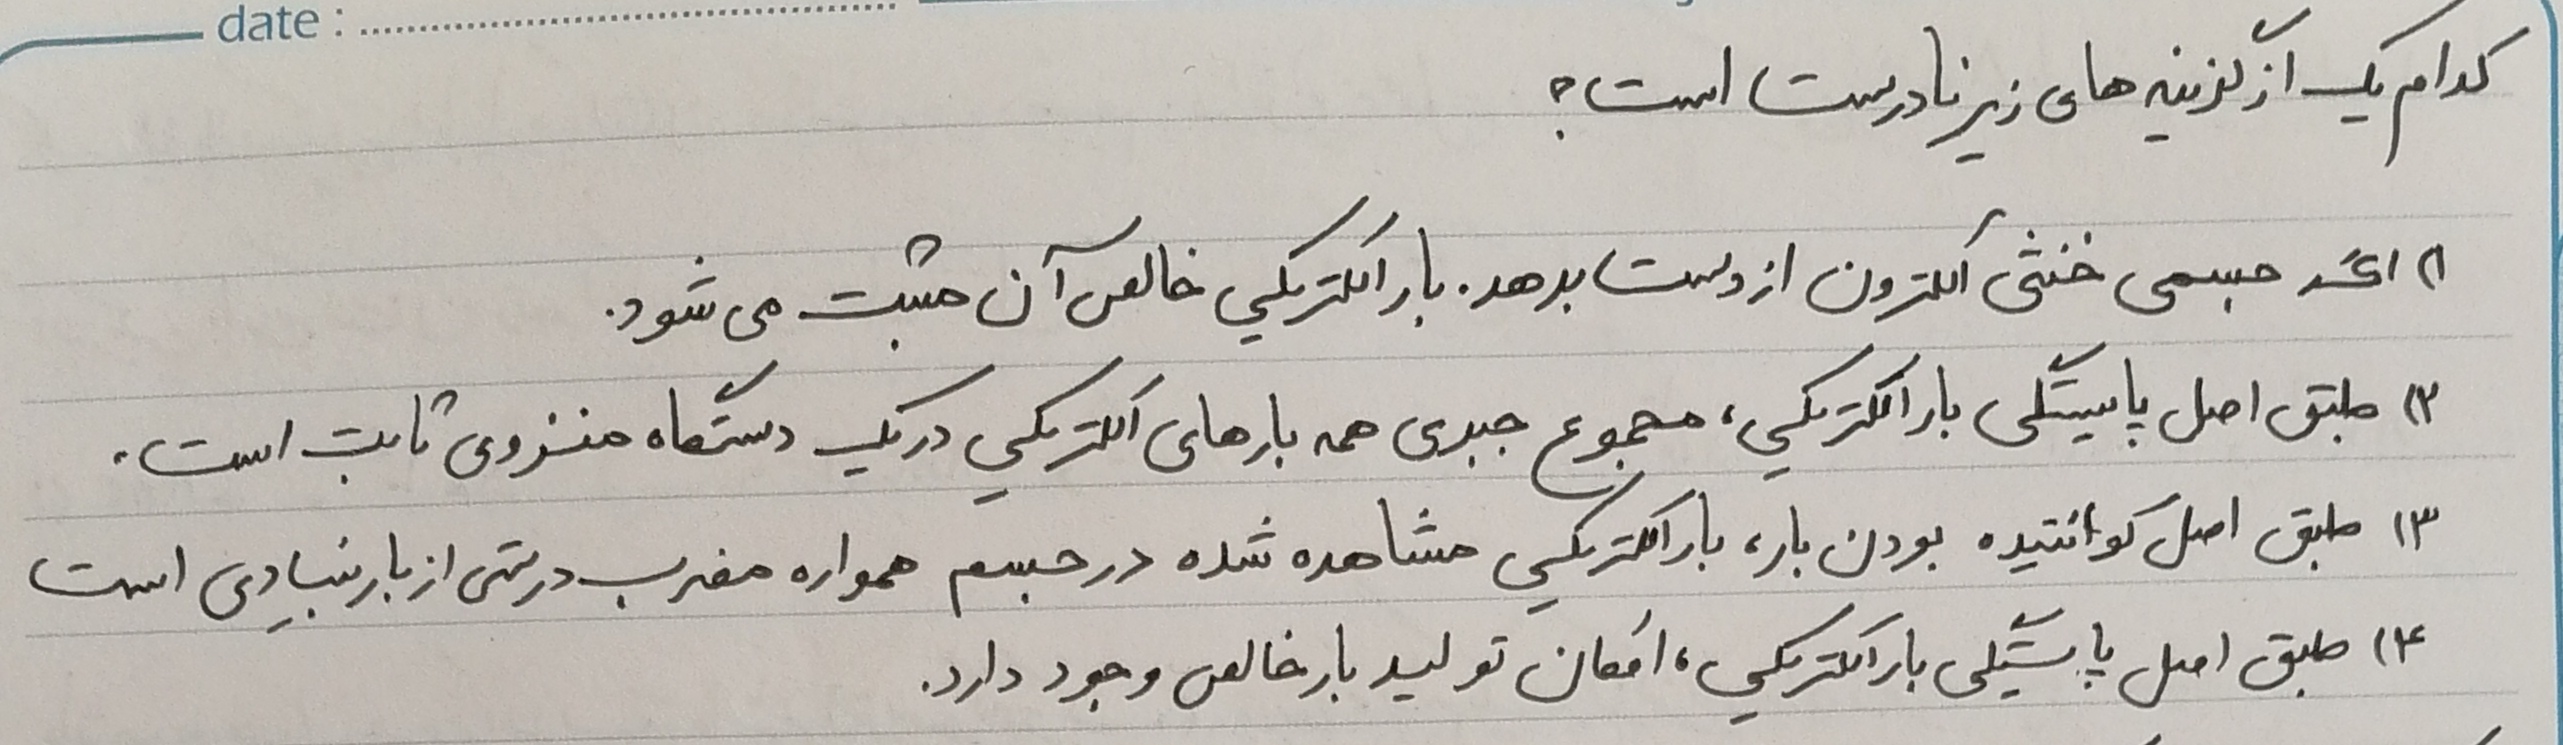 date :
کدام یک از گزینه های زیر نادرست است؟
۱) اگر جسمی خنثی الکترون از دست بدهد. بار الکتریکی خالص آن مثبت می شود.
۲) طبق اصل پایستگی بار الکتریکی، مجموع جبری همه بارهای الکتریکی در یک دستگاه منزوی ثابت است.
۳) طبق اصل کوانتیده بودن بار، بار الکتریکی مشاهده شده در جسم همواره مضرب درستی از بار بنیادی است
۴) طبق اصل پایستگی بار الکتریکی، امکان تولید بار خالص وجود دارد.